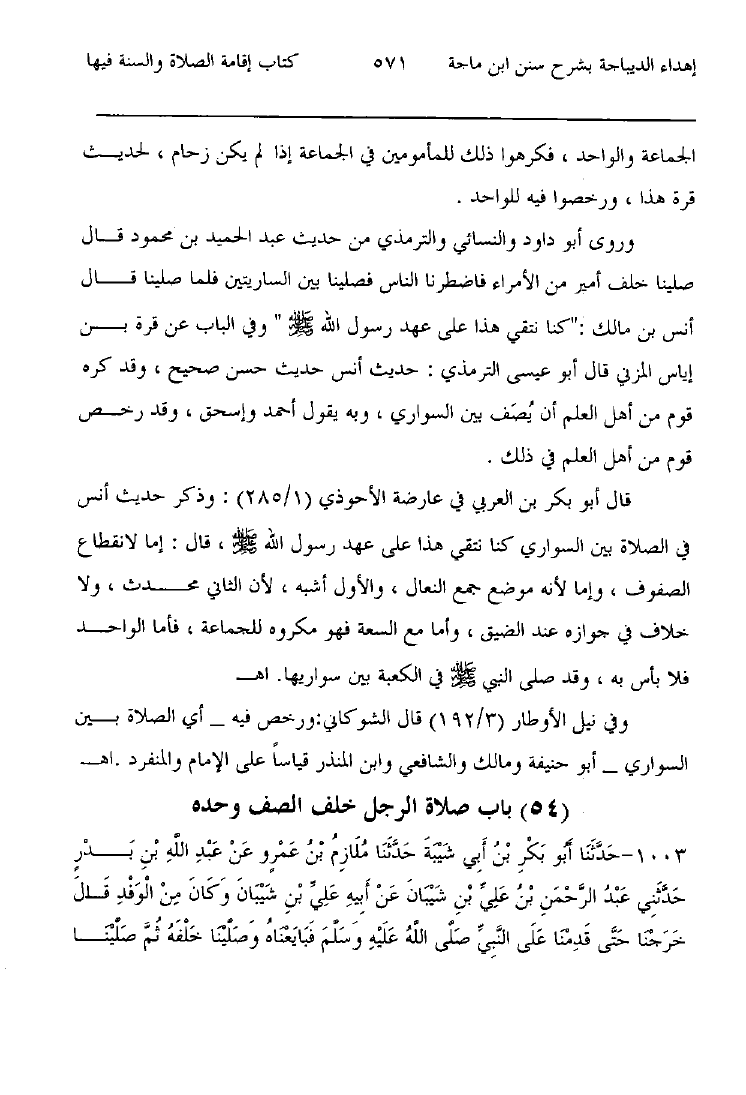 إهداء الديباجة بشرح سنن ابن ماجة ٥٧١ كتاب إقامة الصلاة والسنة فيها
الجماعة والواحد ، فكرهوا ذلك للمأمومين في الجماعة إذا لم يكن زحام ، لحديث
قرة هذا ، ورخصوا فيه للواحد .
وروى أبو داود والنسائي والترمذي من حديث عبد الحميد بن محمود قال
صلينا خلف أمير من الأمراء فاضطرنا الناس فصلينا بين الساريتين فلما صلينا قال
أنس بن مالك :"كنا نتقي هذا على عهد رسول الله ﷺ " وفي الباب عن قرة بن
إياس المزني قال أبو عيسى الترمذي : حديث أنس حديث حسن صحيح ، وقد كره
قوم من أهل العلم أن يُصَف بين السواري ، وبه يقول أحمد وإسحق ، وقد رخص
قوم من أهل العلم في ذلك .
قال أبو بكر بن العربي في عارضة الأحوذي (٢٨٥/١) : وذكر حديث أنس
في الصلاة بين السواري كنا نتقي هذا على عهد رسول الله ﷺ ، قال : إما لانقطاع
الصفوف ، وإما لأنه موضع جمع النعال ، والأول أشبه ، لأن الثاني محدث ، ولا
خلاف في جوازه عند الضيق ، وأما مع السعة فهو مكروه للجماعة ، فأما الواحد
فلا بأس به ، وقد صلى النبي ﷺ في الكعبة بين سواريها. اهـ
وفي نيل الأوطار (١٩٢/٣) قال الشوكاني:ورخص فيه _ أي الصلاة بين
السواري _ أبو حنيفة ومالك والشافعي وابن المنذر قياساً على الإمام والمنفرد .اهـ
(٥٤) باب صلاة الرجل خلف الصف وحده
١٠٠٣-حَدَّثَنَا أَبُو بَكْرِ بْنُ أَبِي شَيْبَةَ حَدَّثَنَا مُلَازِمُ بْنُ عَمْرٍو عَنْ عَبْدِ اللَّهِ بْنِ بَدْرٍ
حَدَّثَنِي عَبْدُ الرَّحْمَنِ بْنُ عَلِيِّ بْنِ شَيْبَانَ عَنْ أَبِيهِ عَلِيِّ بْنِ شَيْبَانَ وَكَانَ مِنْ الْوَفْدِ قَالَ
خَرَجْنَا حَتَّى قَدِمْنَا عَلَى النَّبِيِّ صَلَّى اللَّهُ عَلَيْهِ وَسَلَّمَ فَبَايَعْنَاهُ وَصَلَّيْنَا خَلْفَهُ ثُمَّ صَلَّيْنَا